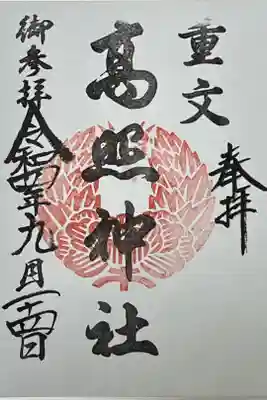 奉拝
重文
髙照神社
御参拝
令和四年九月二十四日